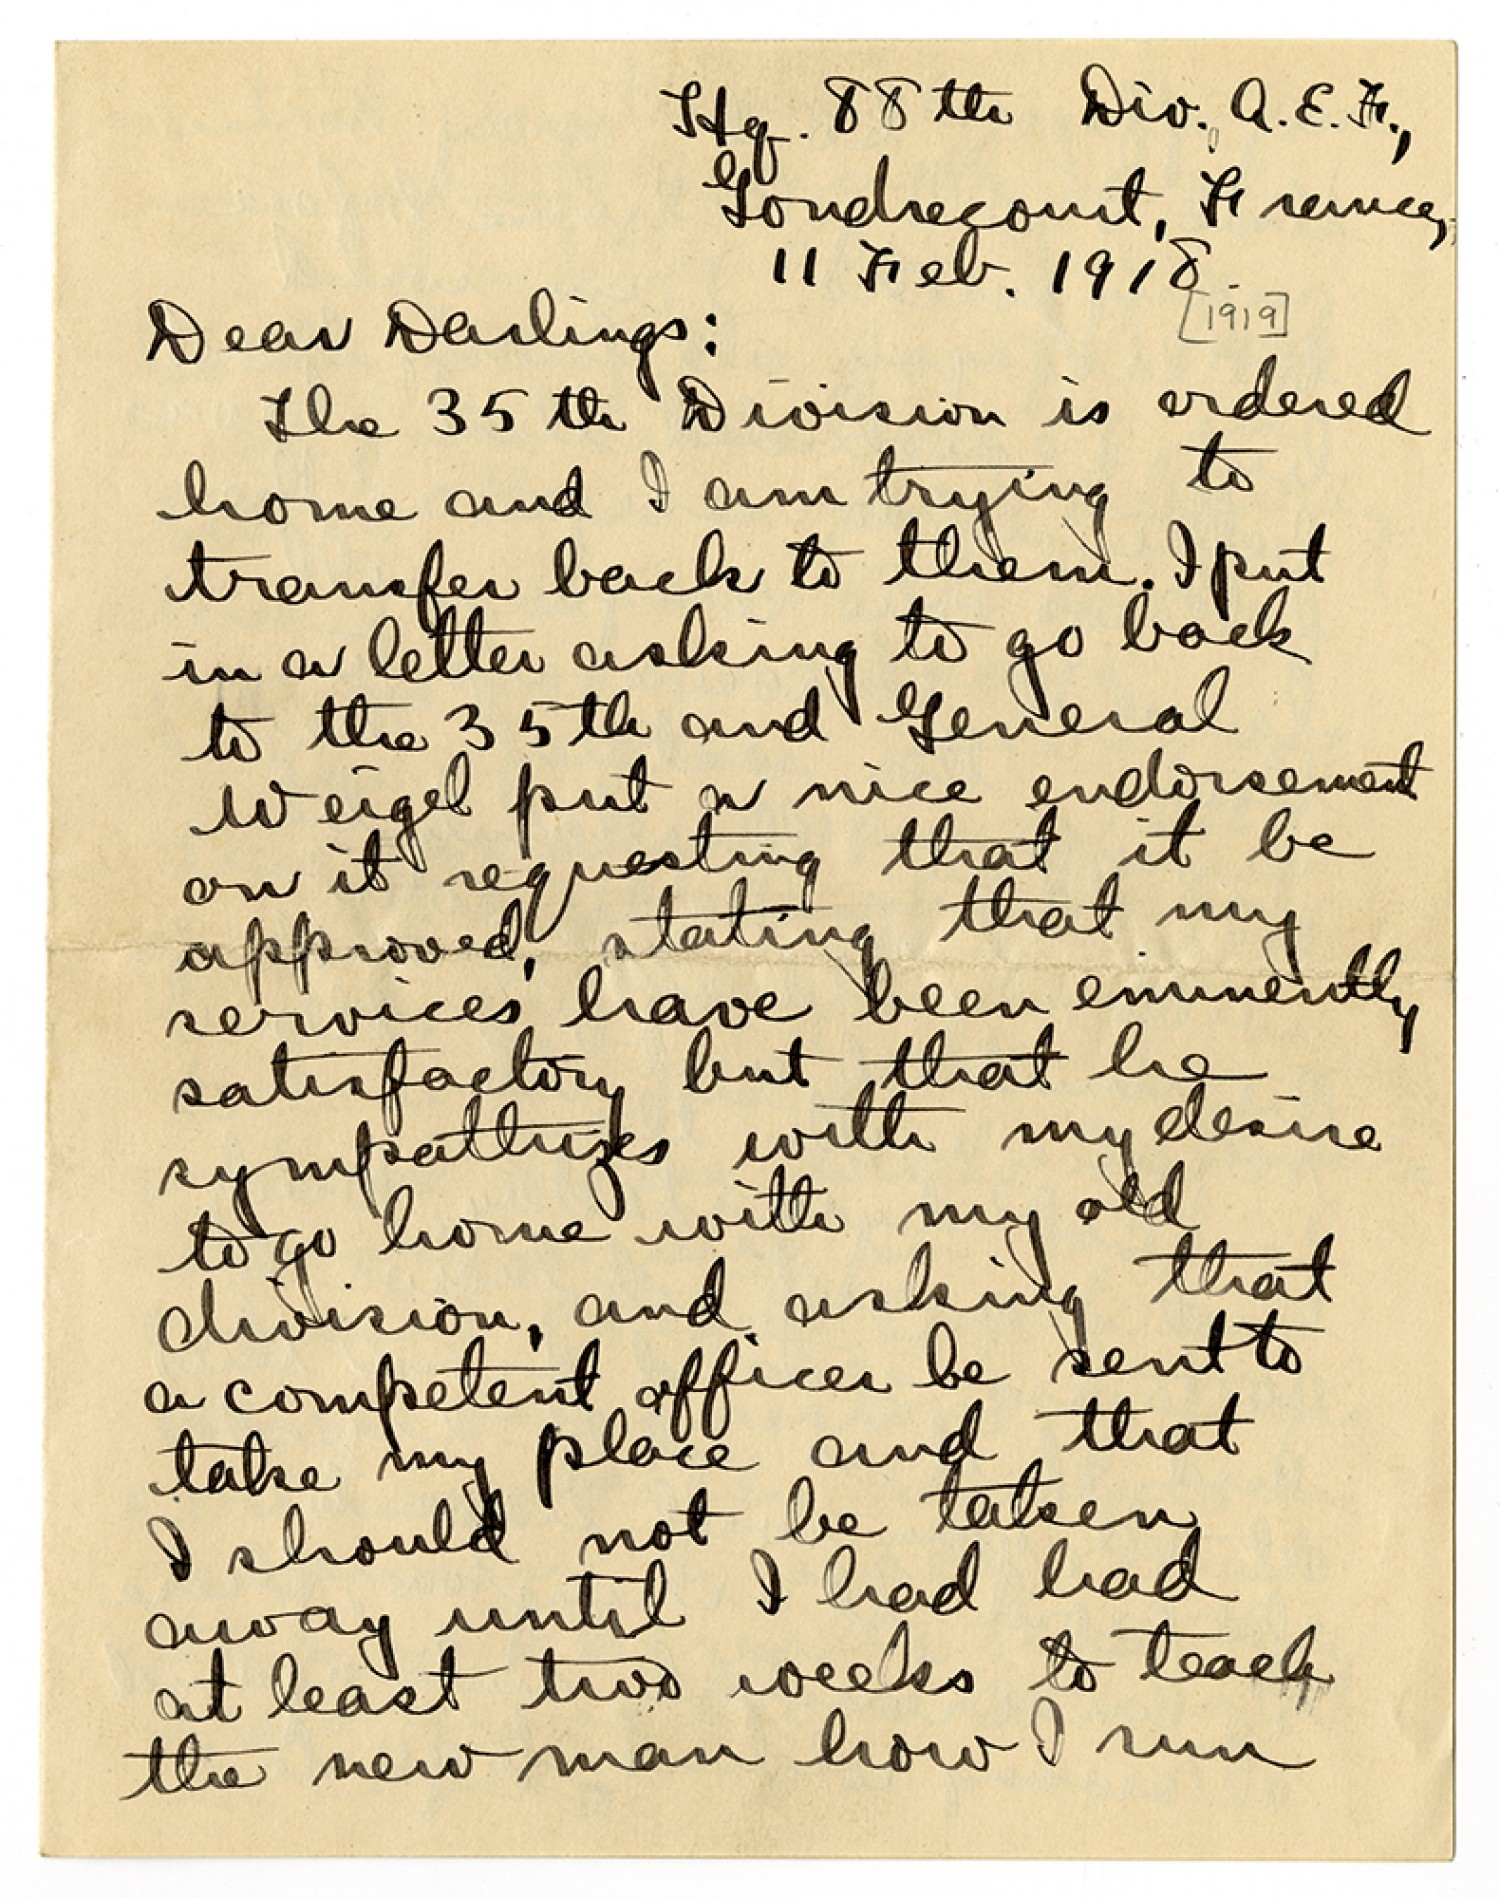 Hq. 88th Div., A.E.F.,
Gondrecourt, France,
11 Feb. 1918.
[1919]
Dear Darlings:
The 35th Division is ordered
home and I am trying to
transfer back to them. I put
in a letter asking to go back
to the 35th and General
Weigel put a nice endorsement
on it requesting that it be
approved, stating that my
services have been eminently
satisfactory but that he
sympathizes with my desire
to go home with my old
division, and asking that
a competent officer be sent to
take my place and that
I should not be taken
away until I had had
at least two weeks to teach
the new man how I run